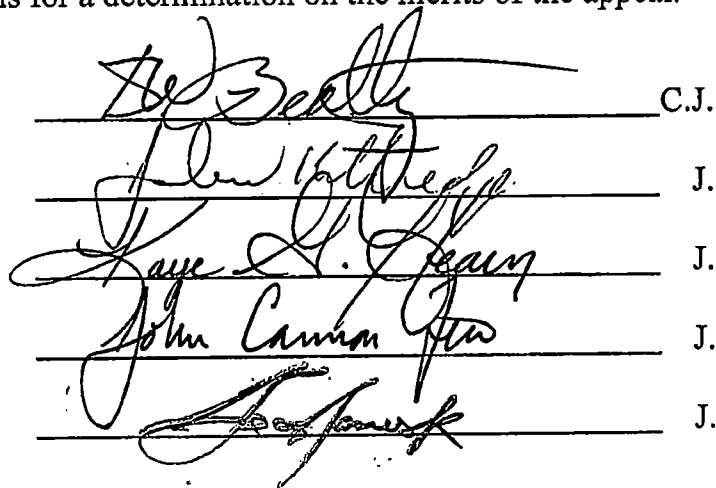 for a determination on the merits of the appeal.
Beatty C.J.
J.
Kaye G. Hearn J.
John Cannon Few J.
J.